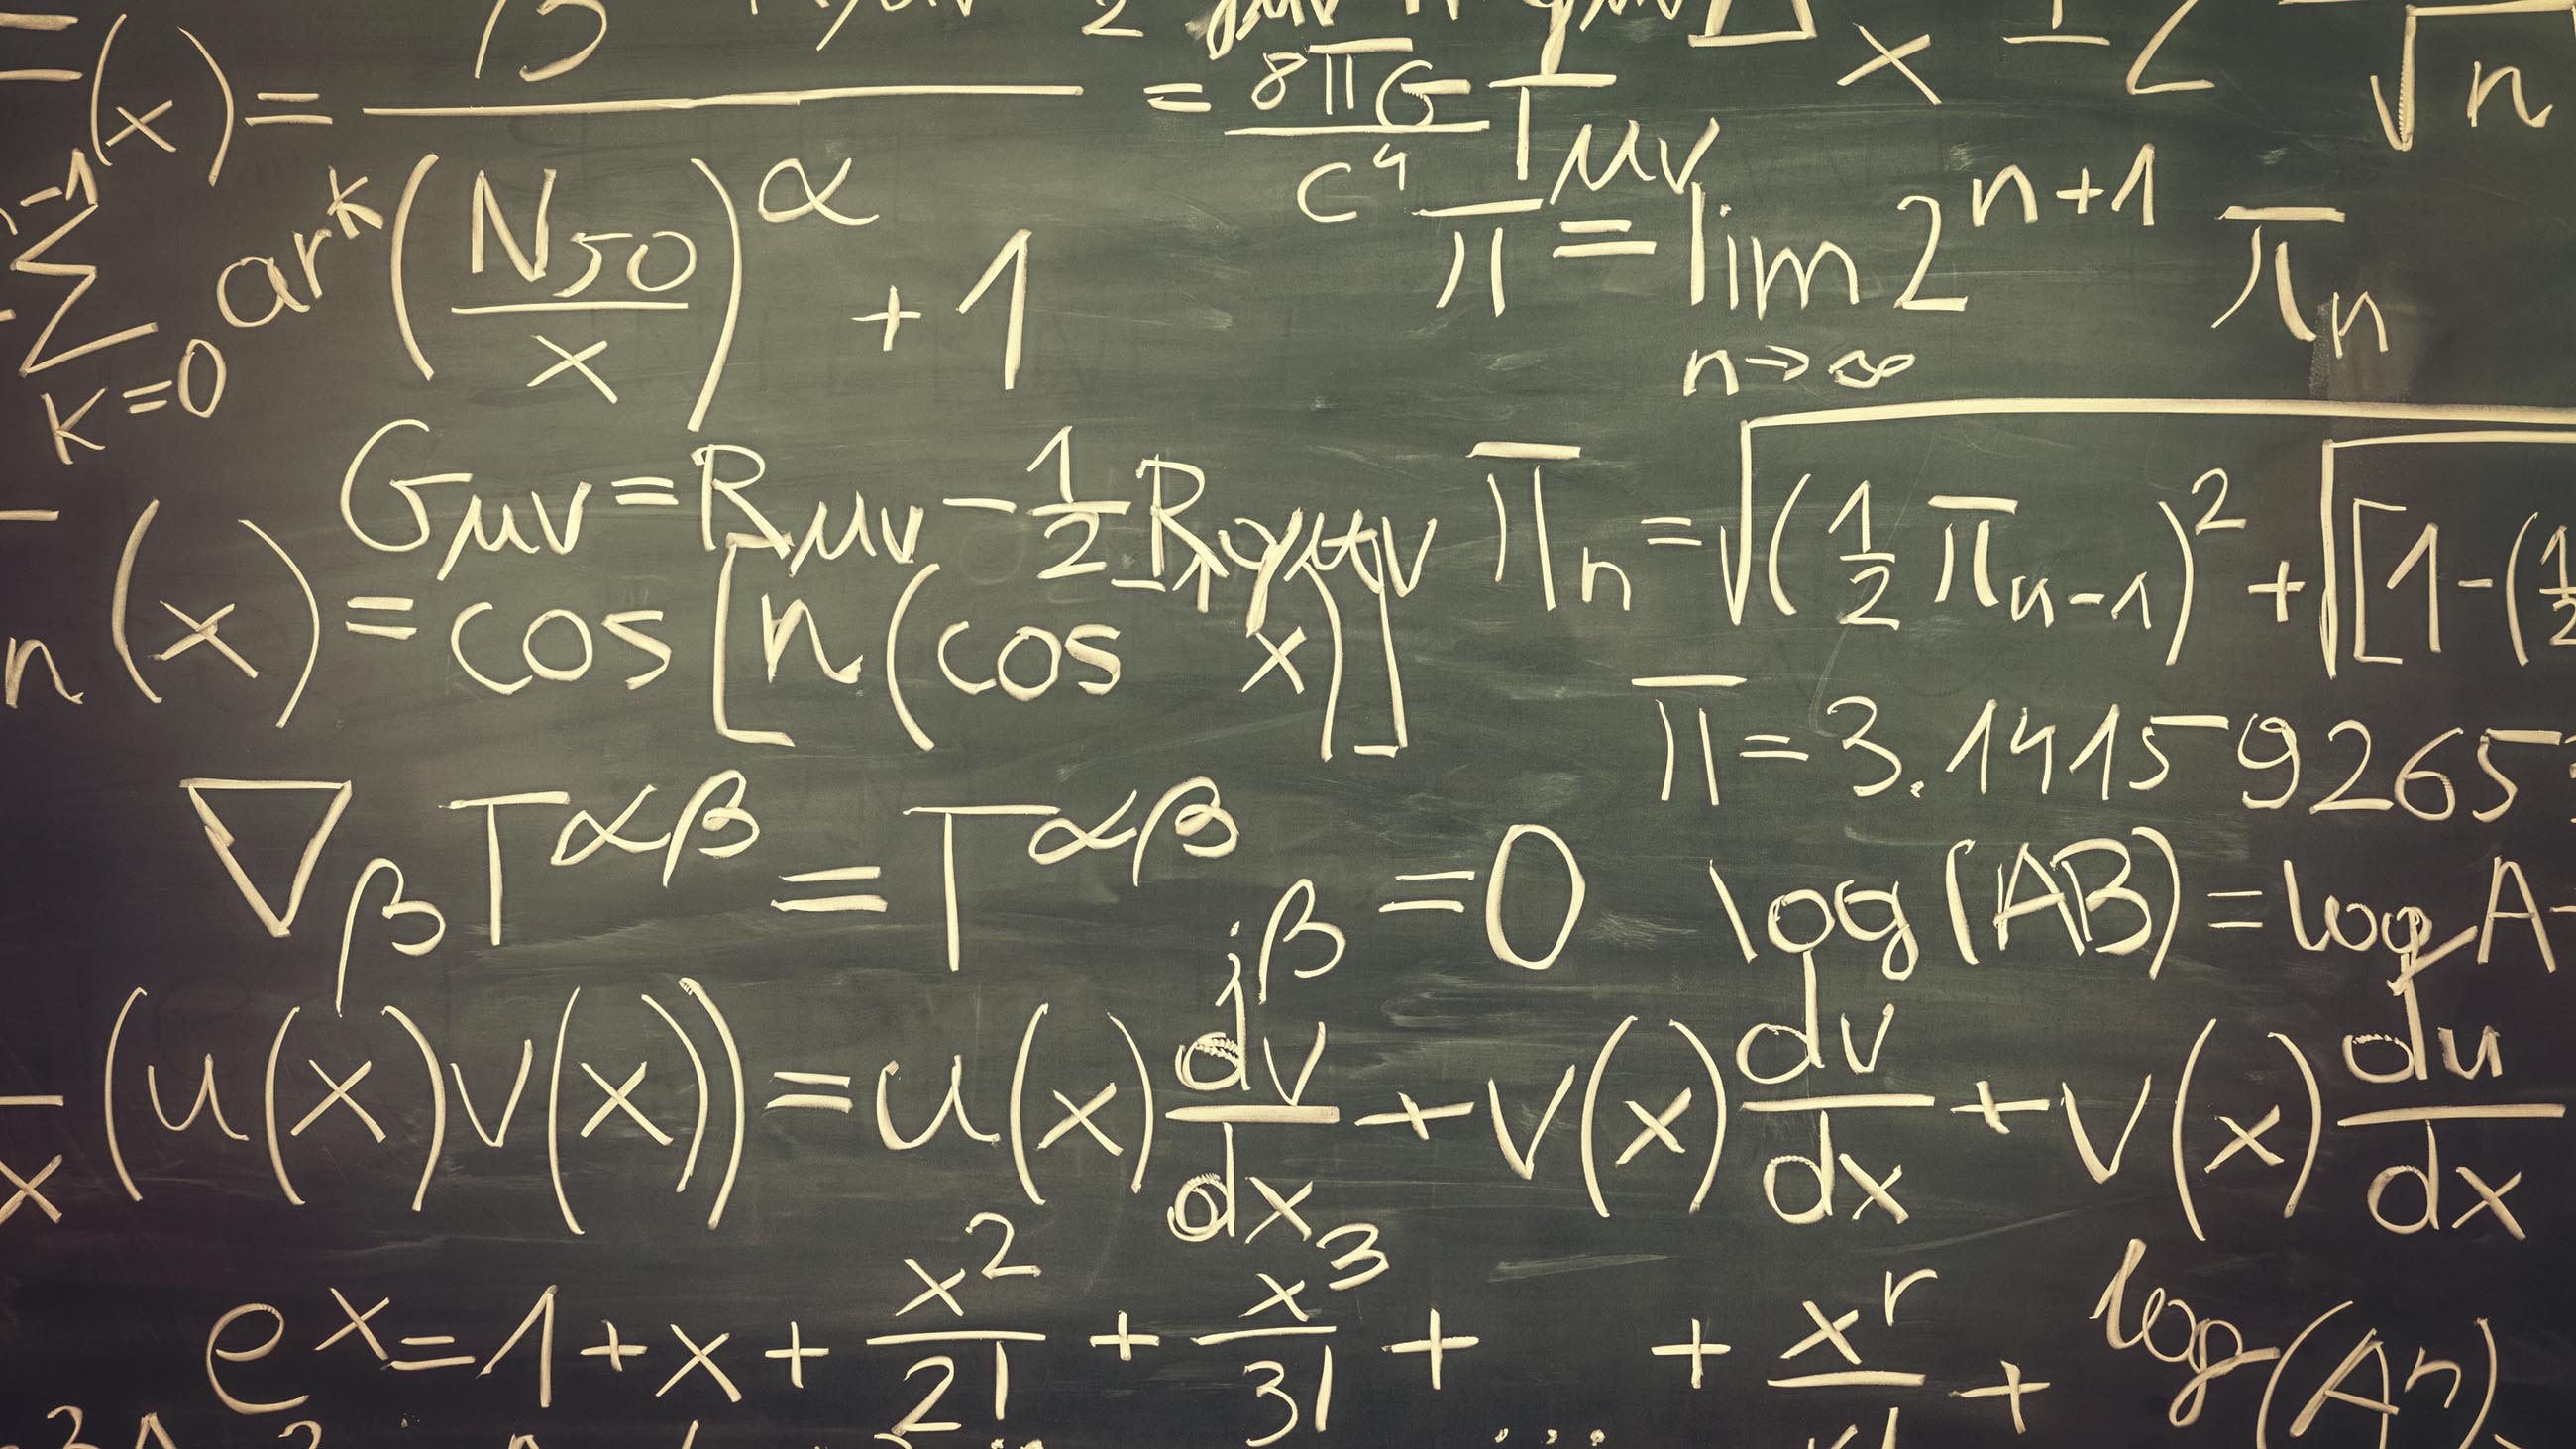 (x) =
= 8πG/c⁴ Tμν
x
√n
∑ ar^k
k=0
(N50/x)^α + 1
π = lim 2^(n+1) π_n
n→∞
Gμν = Rμν - 1/2 R gμν
π_n = √(1/2 π_(n-1))² + √[1-(1/2
n(x) = cos[n(cos⁻¹ x)]
π = 3.14159265
∇_β T^αβ = T^αβ_jβ = 0
log(AB) = log A
x (u(x)v(x)) = u(x) dv/dx + v(x) dv/dx + v(x) du/dx
e^x = 1 + x + x²/2! + x³/3! + ... + x^r/r! +
log(A^n)